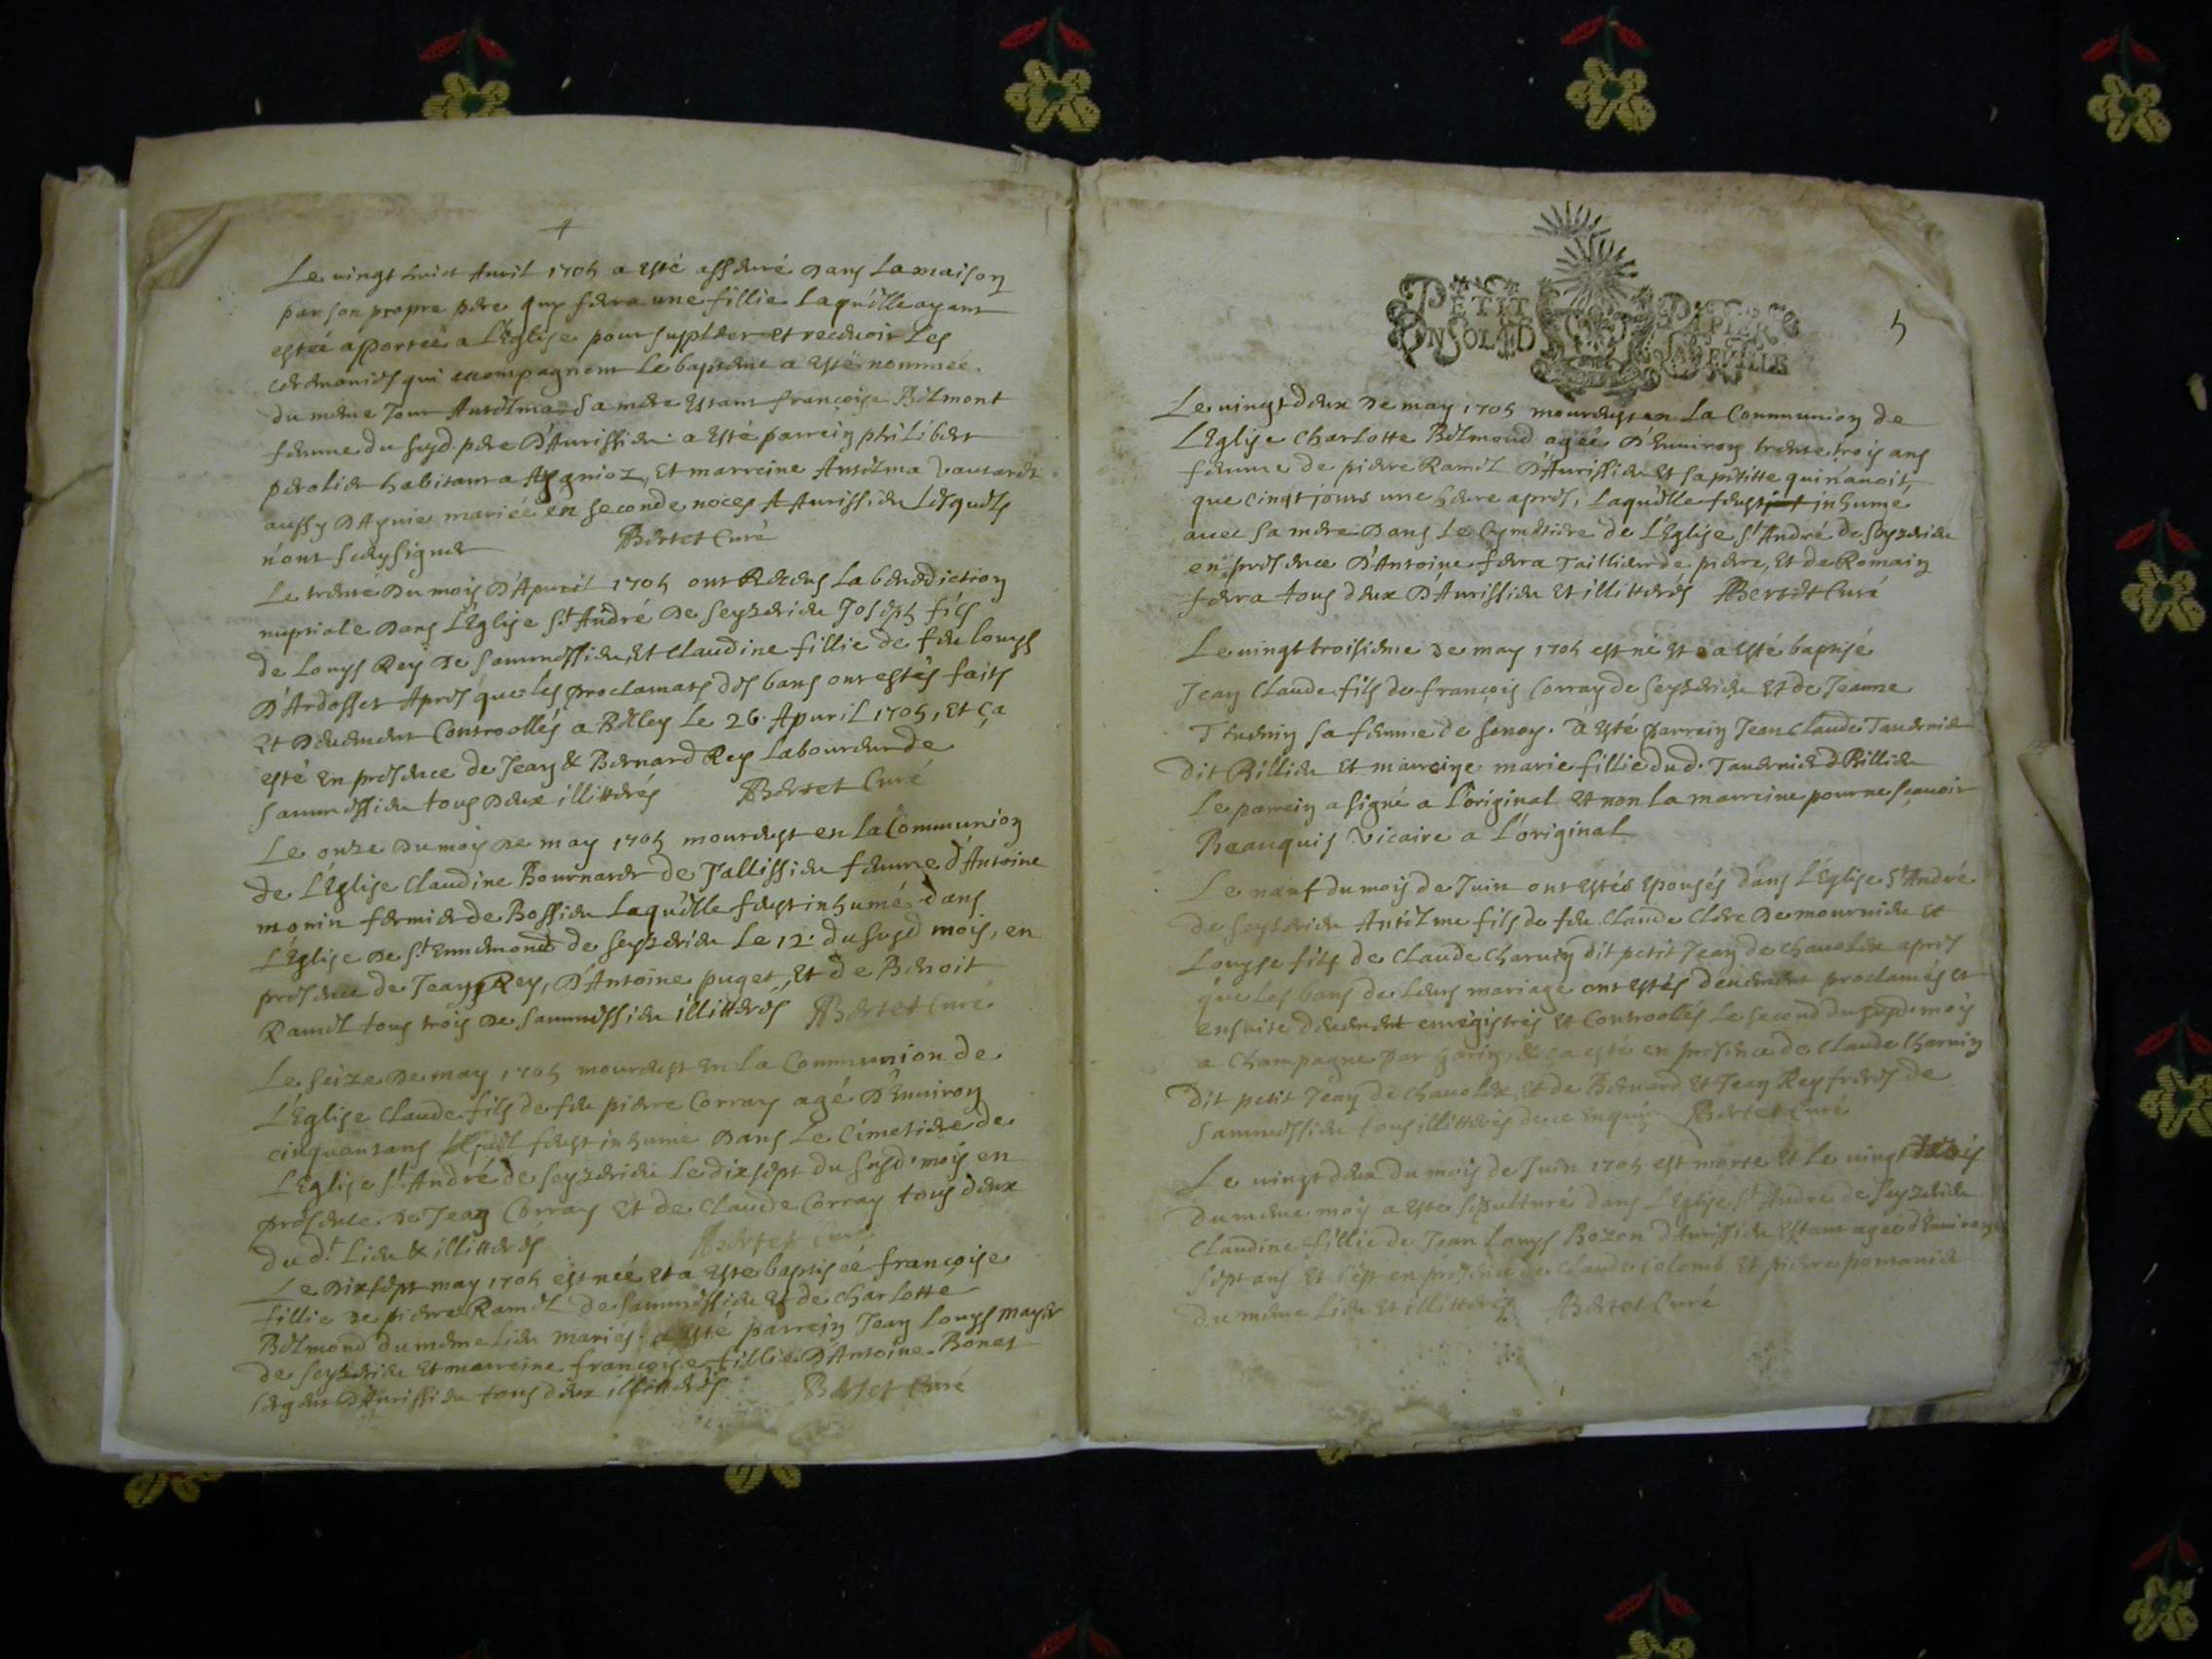 4
Le vingt huict Auril 1705 a esté assduré Dans La maison
par son propre pere guy ferra une fillie Laquelle ayant
esteé apporteé a L'Eglise pour suppléer et recevoir Les
ceremonies qui accompagnent Le baptesme a esté nommeé
du meme Jour Antelma Sa mere estant françoise Belmont
femme du susd. pere D'Aurissieu a esté parrein philibert
perolier habitant a et marreine Antelma
aussy marieé en seconde noces A Aurissieu Lesquels
n'ont sceu signer Bertet Curé
Le trente Du mois D'Apuril 1705 ont Receus La benediction
nuptiale Dans L'Eglise St André De Seyzerieu Joseph fils
de Louys Rey De Sammessieu, et Claudine fillie de feu Louys
D'Ardosset Apres que les proclamats des bans ont estés faits
et deuement Controollés a Belley Le 26. Apuril 1705, et ça
esté en presence de Jean & Bernard Rey Laboureur de
Sammessieu tous Deux illitterés Bertet Curé
Le onze Du mois De may 1705 mourust en La Communion
de L'Eglise Claudine Bournarde de Tallissieu femme d'Antoine
monin fermier de Bossieu Laquelle fust inhumé dans
L'Eglise De St Ennemond de Seyzerieu Le 12. du susd mois, en
presence de Jean Rey, D'Antoine puget, et de Benoit
Ramel tous trois De Sammessieu illitterés Bertet Curé
Le seize De may 1705 mourust en La Communion de
L'Eglise Claude fils de feu pierre Corray agé D'Enuiron
cinquantans Lequel fust inhumé Dans Le Cimetiere de
L'Eglise St André de Seyzerieu Le dixsept du susd. mois en
presence De Jean Corray et de Claude Corray tous deux
du dt Lieu & illitterés Bertet Curé
Le Dixsept may 1705 est neé et a este baptiseé françoise
fillie De pierre Ramel de Sammessieu et de Charlotte
Belmond du meme Lieu mariés. a esté parrein Jean Louys mayer
de Seyzerieu et marreine françoise fillie D'Antoine Bonet
D'Aurissieu tous deux illitterés Bertet Curé
PETIT PAPIER
UN SOL LA FEUILLE
5
Le vingt deux De may 1705 mourust en La Communion de
L'Eglise Charlotte Belmond ageé D'Enuiron trente trois ans
femme de pierre Ramel D'Aurissieu et sa petitte qui n'auoit
que cingt jours une heure apres, Laquelle fust inhumé
auec sa mere Dans Le Cymetiere de L'Eglise St André de Seyzerieu
en presence D'Antoine ferra Taillieur de pierre, et de Romain
ferra tous deux D'Aurissieu et illitterés Bertet Curé
Le vingt troisieme De may 1705 est né et a esté baptisé
Jean Claude fils de françois Corray de Seyzerieu et de Jeanne
sa femme de a esté parrein Jean Claude Tauernier
Dit Rillieu et marreine marie fillie dud. Tauernier d Rillieu
Le parrein a signé a L'original et non La marreine pour ne sçauoir
Beauquis Vicaire a L'original
Le neuf du mois de Juin ont estés Epousés dans L'Eglise St André
de Seyzerieu Antelme fils de feu Claude Clerc De mournieu et
Louyse fils de Claude Charuin dit petit Jean de Chauolex apres
que Les bans de Leurs mariage ont estés deuement proclamés et
ensuite deuement enregistrés et Controollés Le second du susd. mois
a Champagne par Garin, & ça esté en presence de Claude Charuin
Dit petit Jean de Chauolex, et de Bernard et Jean Rey freres de
Sammessieu tous illitterés de ce enquis Bertet Curé
Le vingt deux du mois de Juin 1705 est morte et Le vingt trois
du meme mois a esté sepulturé dans L'Eglise St André de Seyzerieu
Claudine fillie de Jean Louys Bozon d'Aurissieu estant ageé d'Enuiron
sept ans et c'est en presence de Claude Colomb et pierre
du meme Lieu et illitterés Bertet Curé